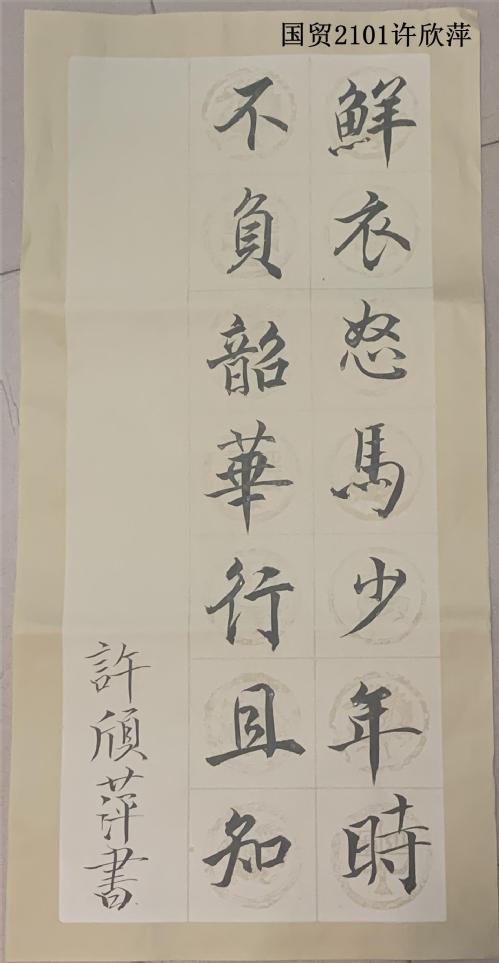 国贸2101许欣萍
鮮衣怒馬少年時
不負韶華行且知
許頎萍書